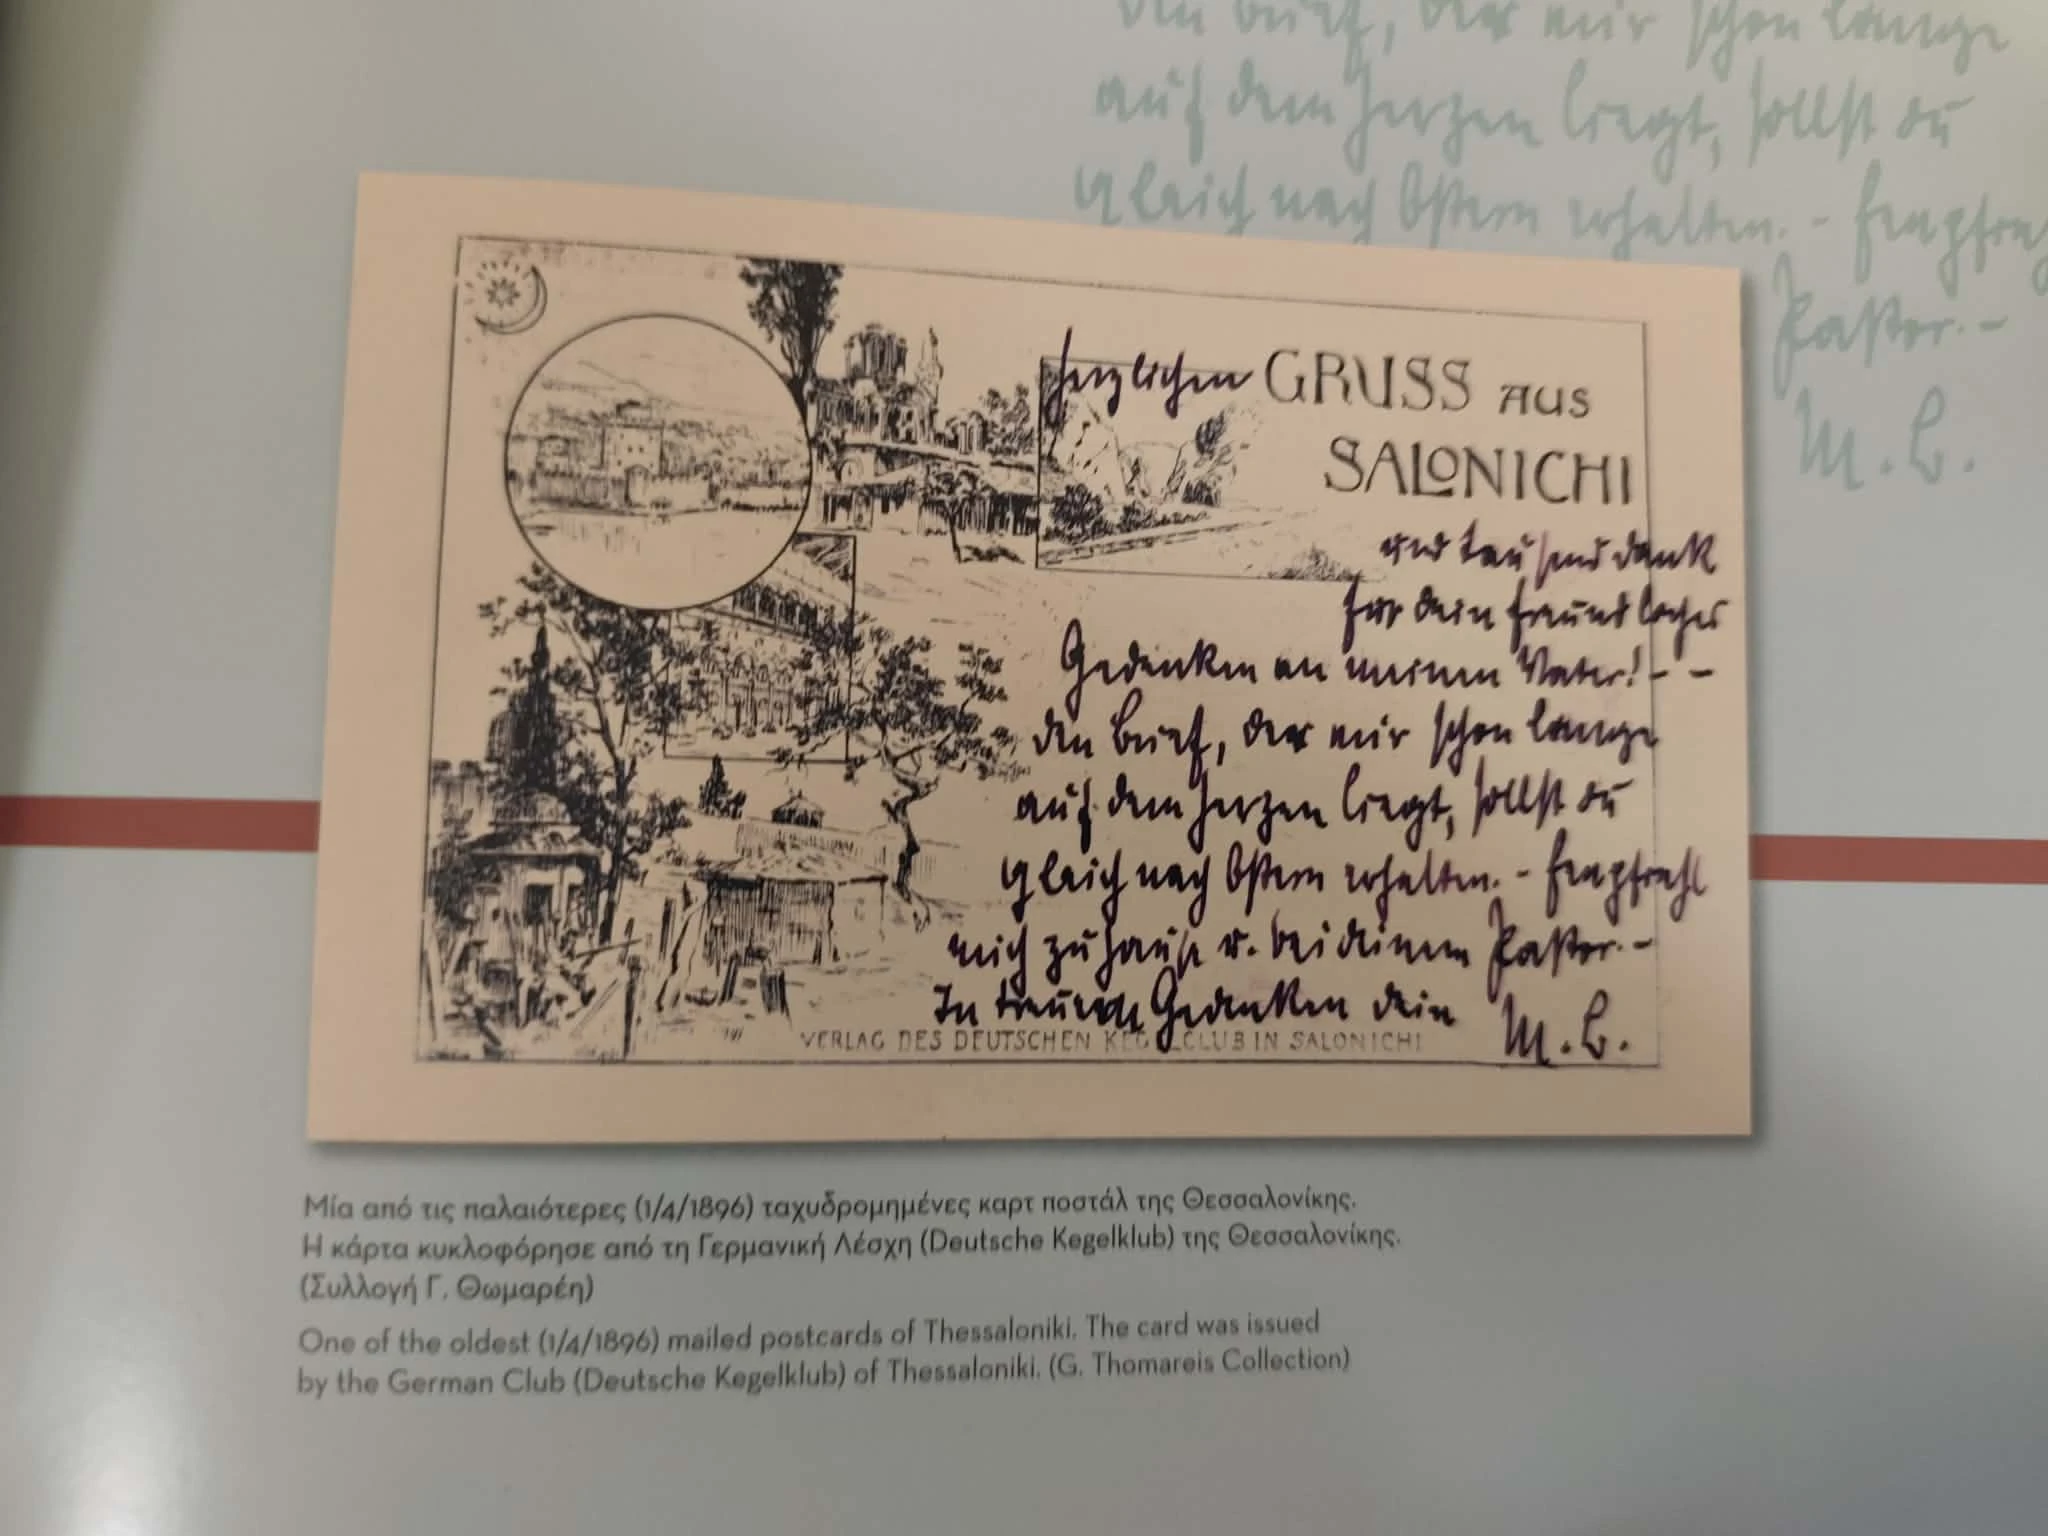 den Brief, der mir schon lange
auf dem Herzen liegt, sollst du
gleich nach Ostern erhalten. -
Pastor. -
M. B.
Herzlichen GRUSS AUS
SALONICHI
und tausend dank
für dein freundliches
Gedenken an meinen Vater! - -
den Brief, der mir schon lange
auf dem Herzen liegt, sollst du
gleich nach Ostern erhalten. - Empfiehl
mich zu Hause u. bei deinem Pastor. -
In treuem Gedenken dein M. B.
VERLAG DES DEUTSCHEN KEGELCLUB IN SALONICHI
Μία από τις παλαιότερες (1/4/1896) ταχυδρομημένες καρτ ποστάλ της Θεσσαλονίκης.
Η κάρτα κυκλοφόρησε από τη Γερμανική Λέσχη (Deutsche Kegelklub) της Θεσσαλονίκης.
(Συλλογή Γ. Θωμαρέη)
One of the oldest (1/4/1896) mailed postcards of Thessaloniki. The card was issued
by the German Club (Deutsche Kegelklub) of Thessaloniki. (G. Thomareis Collection)